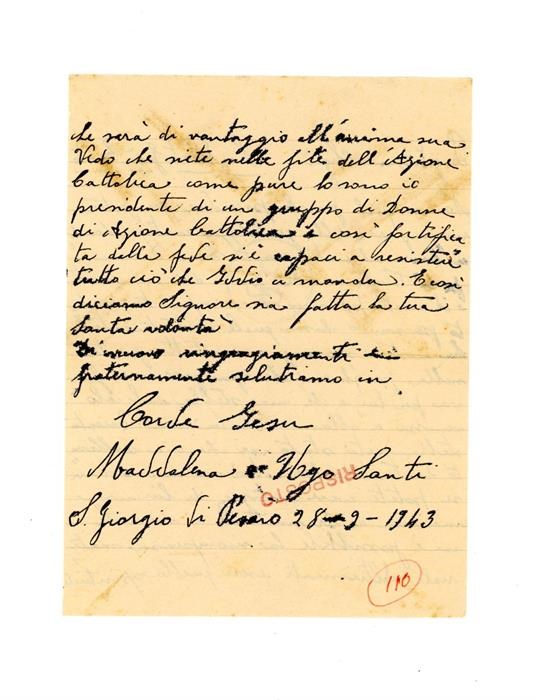 che sarà di vantaggio all'anima sua
Vedo che siete nelle file dell'Azione
Cattolica come pure lo sono io
presidente di un gruppo di Donne
di Azione Cattolica e così fortifica
ta della fede si è capaci a resistere
tutto ciò che Iddio ci manda. E così
diciamo Signore sia fatta la tua
Santa volontà
Di nuovo ringraziamenti
fraternamente salutiamo in
Corde Gesu
Maddalena e Ugo Santi
RISPOSTO
S. Giorgio di Pesaro 28-9-1943
110